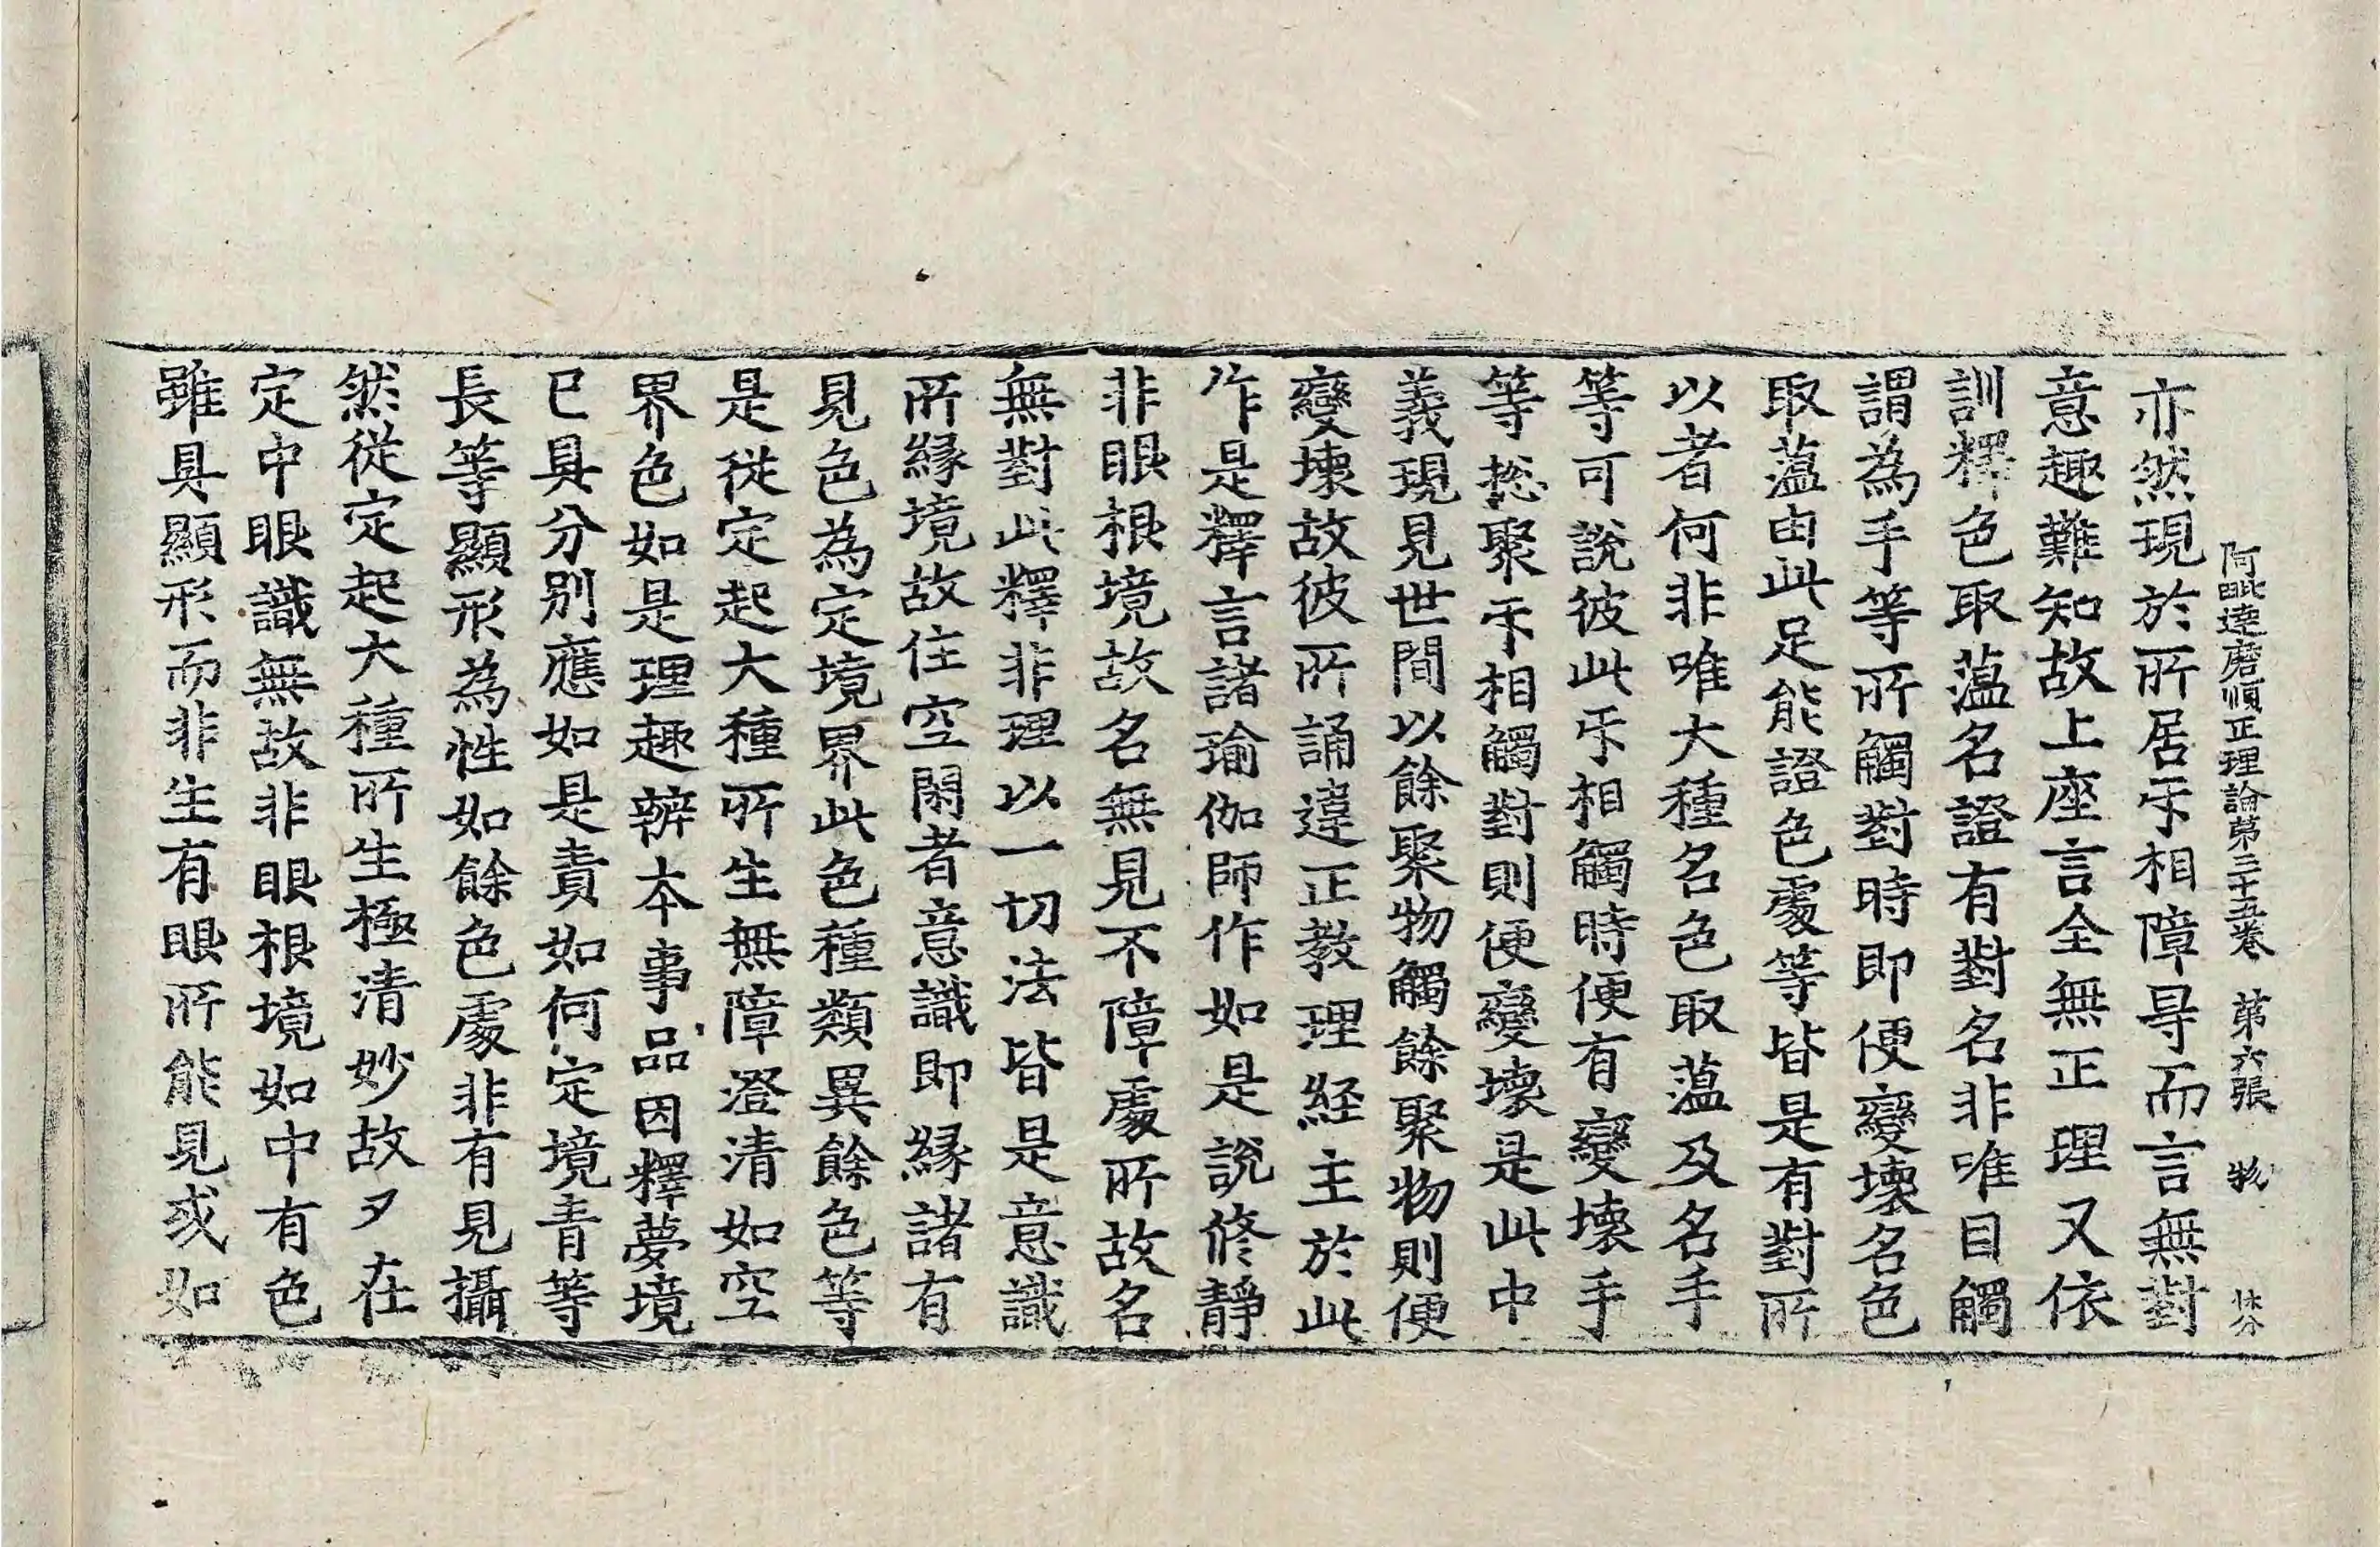 阿毗達磨順正理論第三十五卷 第六張 物
亦然現於所居㸦相障㝵而言無對
意趣難知故上座言全無正理又依
訓釋色取蕰名證有對名非唯目觸
謂為手等所觸對時即便變壞名色
取蕰由此足能證色處等皆是有對所
以者何非唯大種名色取蕰及名手
等可說彼此㸦相觸時便有變壞手
等捴聚㸦相觸對則便變壞是此中
義現見世間以餘聚物觸餘聚物則便
變壞故彼所誦違正教理経主於此
作是釋言諸瑜伽師作如是說修靜
非眼根境故名無見不障處所故名
無對此釋非理以一切法皆是意識
所緣境故住空閑者意識即緣諸有
見色為定境界此色種類異餘色等
是從定起大種所生無障澄清如空
界色如是理趣辯本事品因釋夢境
已具分別應如是責如何定境青等
長等顯形為性如餘色處非有見攝
然從定起大種所生極清妙故又在
定中眼識無故非眼根境如中有色
雖具顯形而非生有眼所能見或如